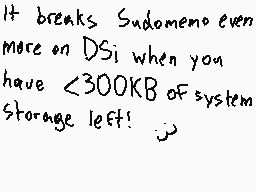 It breaks Sudomemo even
more on DSi when you
have <300KB of system
storage left! :)